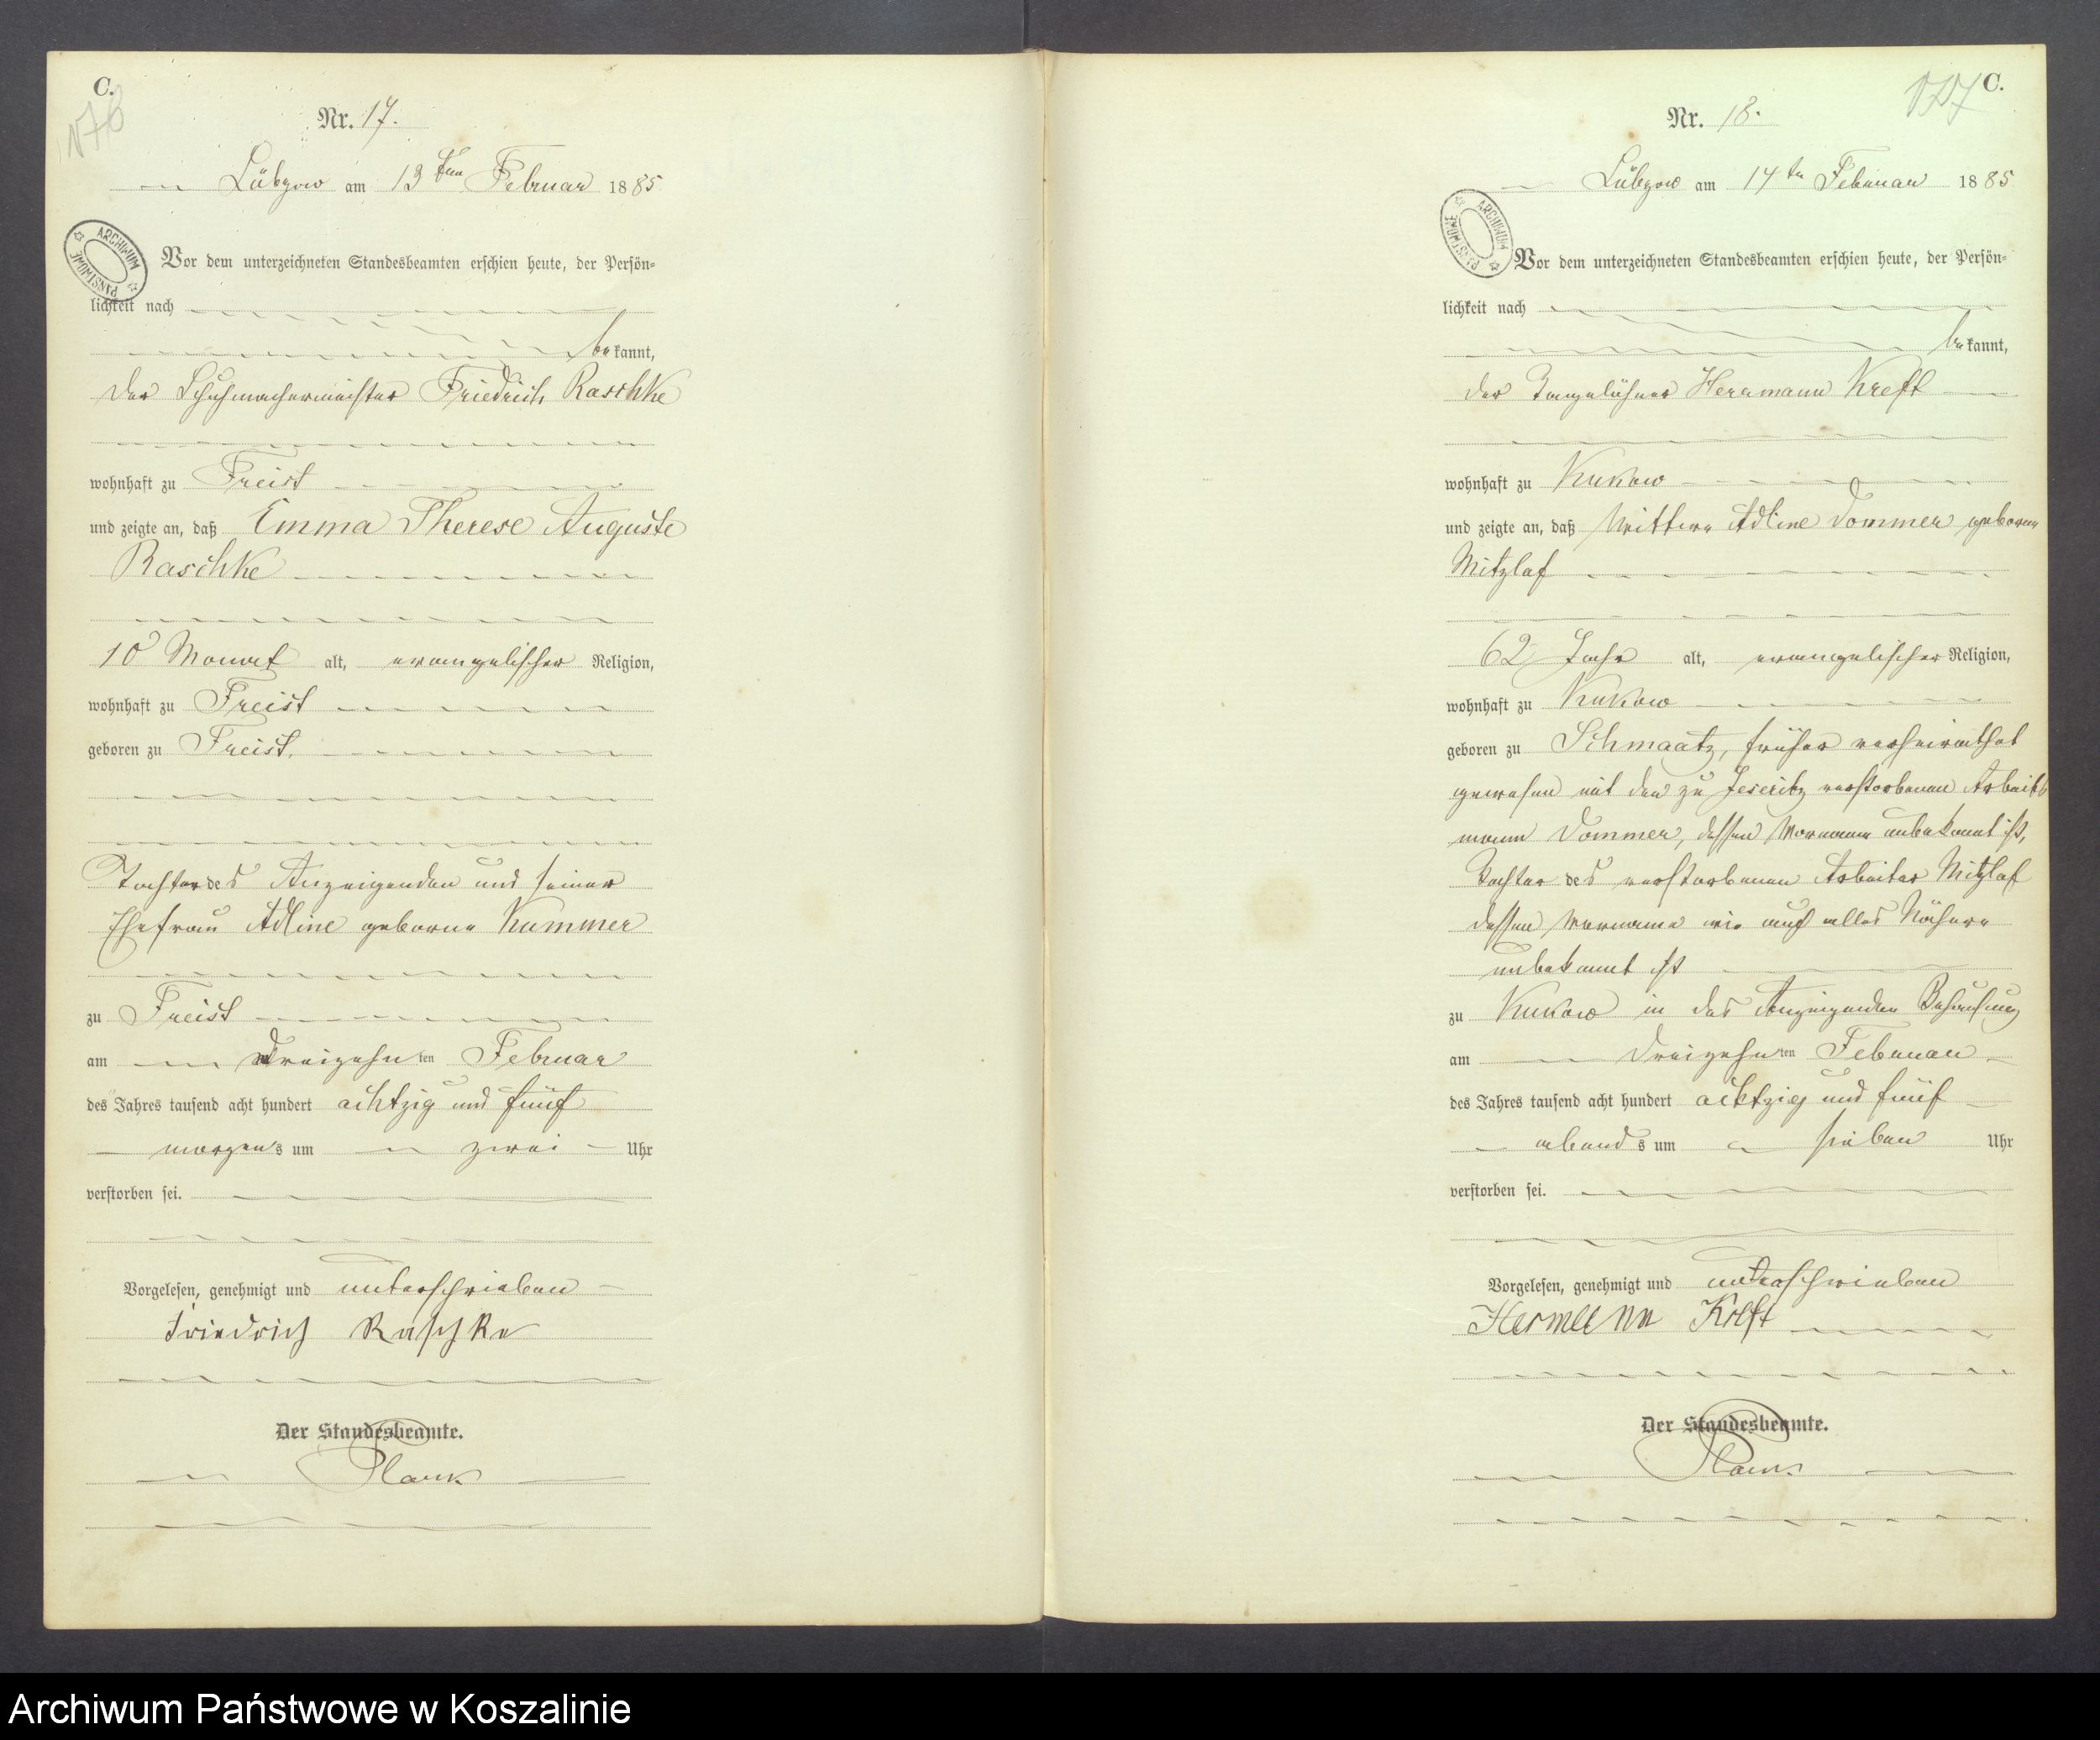 C.
Nr. 17.
Lübzow am 13ten Februar 1885
ARCHIWUM PAŃSTWOWE
Vor dem unterzeichneten Standesbeamten erschien heute, der Persön-
lichkeit nach
bekannt,
der Schuhmachermeister Friedrich Raschke
wohnhaft zu Freist
und zeigte an, daß Emma Therese Auguste
Raschke
10 Monat alt, evangelischer Religion,
wohnhaft zu Freist
geboren zu Freist.
Tochter des Anzeigenden und seiner
Ehefrau Adline geborne Kummer
zu Freist
am dreizehnten Februar
des Jahres tausend acht hundert achtzig und fünf
morgens um zwei Uhr
verstorben sei.
Vorgelesen, genehmigt und unterschrieben
Friedrich Raschke
Der Standesbeamte.
C.
Nr. 18.
Lübzow am 14ten Februar 1885
ARCHIWUM PAŃSTWOWE
Vor dem unterzeichneten Standesbeamten erschien heute, der Persön-
lichkeit nach
bekannt,
der Tagelöhner Herrmann Kreft
wohnhaft zu Kukow
und zeigte an, daß Wittwe Adline Dommer geborne
Mitzlaf
62 Jahr alt, evangelischer Religion,
wohnhaft zu Kukow
geboren zu Schmaatz, früher verheirathet
gewesen mit dem zu Jeseritz verstorbenen Arbeits
mann Dommer, dessen Vorname unbekannt ist,
Tochter des verstorbenen Arbeiter Mitzlaf
dessen Vorname wie auch alles Nähere
unbekannt ist
zu Kukow in des Anzeigenden Behausung
am dreizehnten Februar
des Jahres tausend acht hundert achtzig und fünf
abends um sieben Uhr
verstorben sei.
Vorgelesen, genehmigt und unterschrieben
Hermann Kreft
Der Standesbeamte.
Archiwum Państwowe w Koszalinie